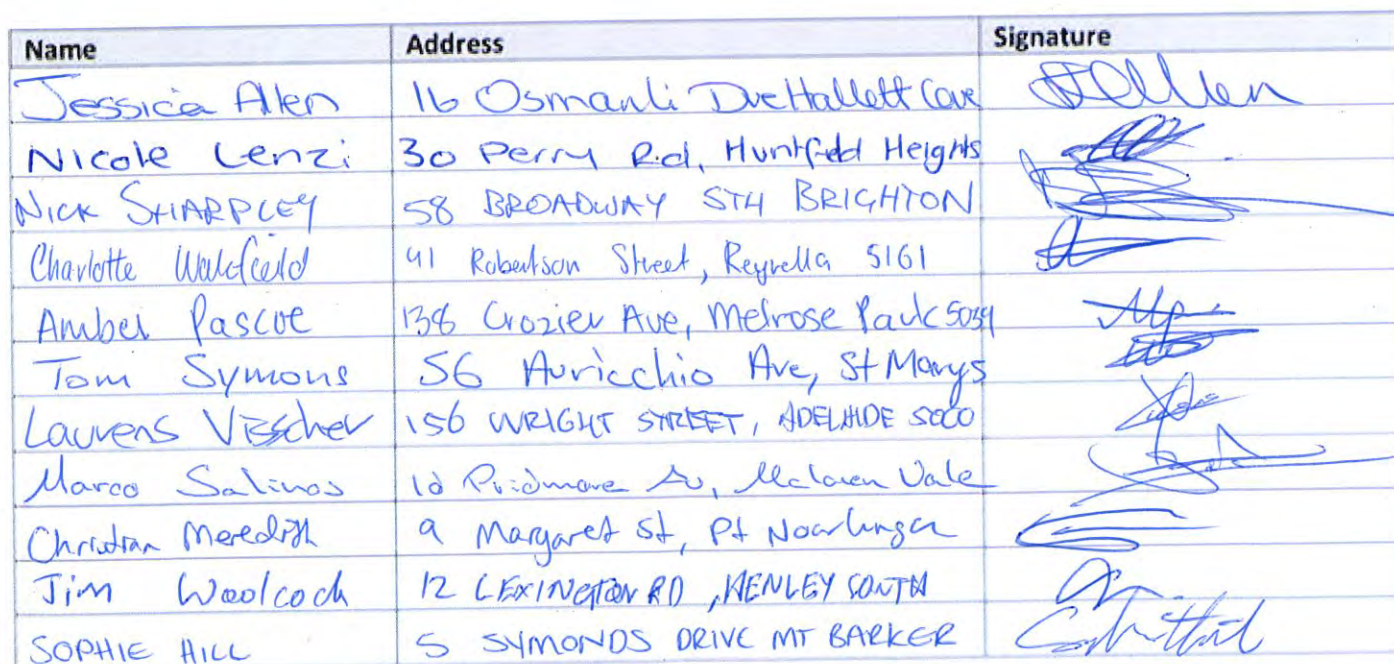 Name Address Signature
Jessica Allen 16 Osmanli Dve Hallett Cove
Nicole Lenzi 30 Perry Rd, Huntfield Heights
NICK SHARPLEY 58 BROADWAY STH BRIGHTON
Charlotte Wakefield 41 Robertson Street, Reynella 5161
Amber Pascoe 138 Crozier Ave, Melrose Park 5039
Tom Symons 56 Auricchio Ave, St Marys
Laurens Visscher 156 WRIGHT STREET, ADELAIDE 5000
Marco Salinas Pridmore Av, Mclaren Vale
Christian Meredith 9 Margaret St, Pt Noarlunga
Jim Woolcock 12 LEXINGTON RD, HENLEY SOUTH
SOPHIE HILL 5 SYMONDS DRIVE MT BARKER